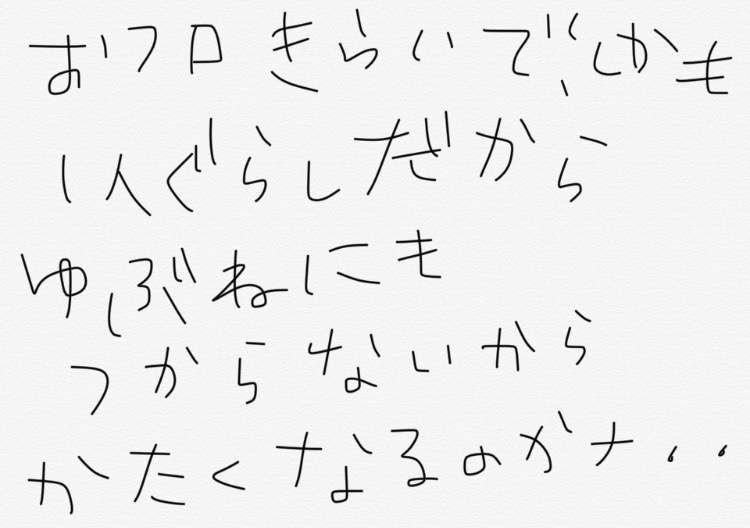 おフロきらいで、しかも
1人ぐらしだから
ゆぶねにも
つからないから
かたくなるのかナ・・